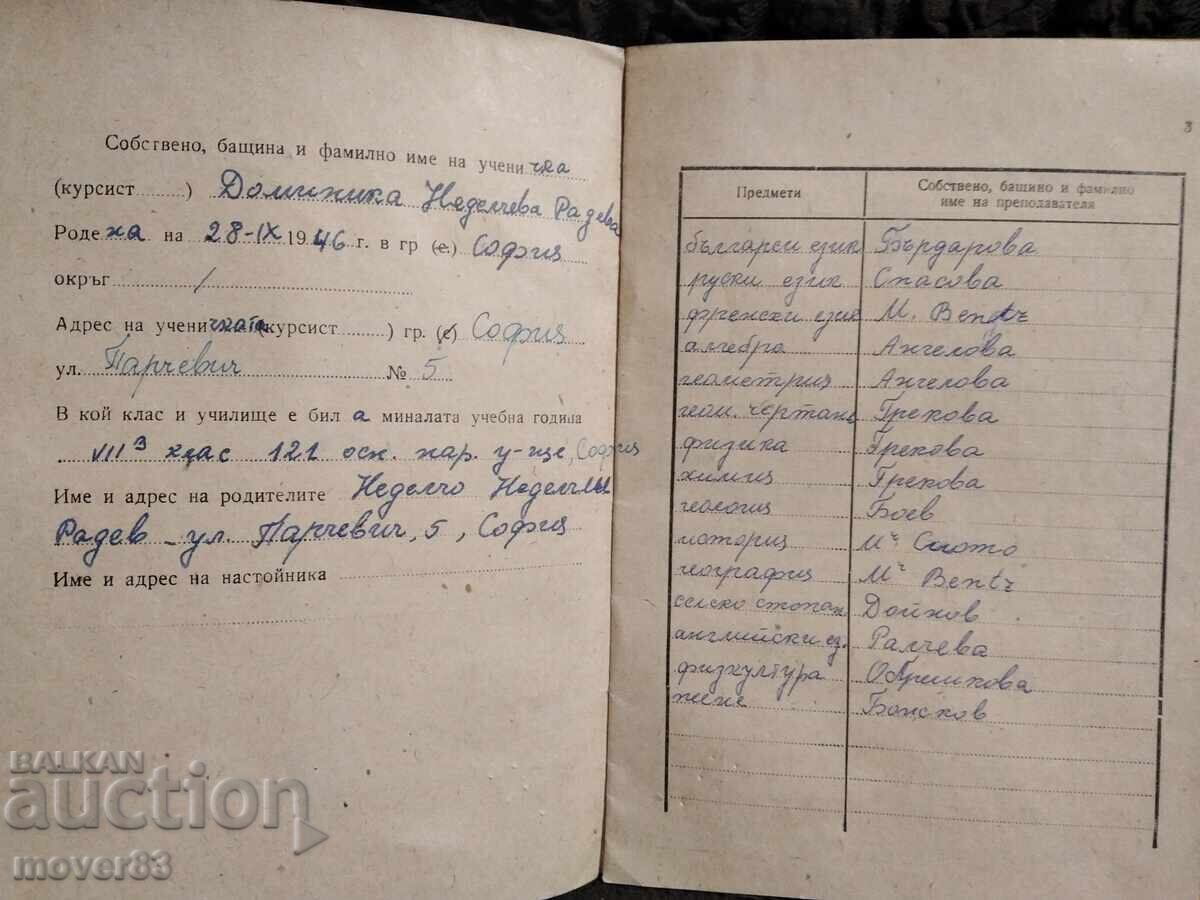 Собствено, бащина и фамилно име на ученичка
(курсист ........) Доминика Неделчева Радева
Родена на 28-IX 1946 г. в гр (с.) София
окръг /
Адрес на ученичката (курсист ........) гр. (с) София
ул. Парчевич № 5
В кой клас и училище е бил а миналата учебна година
VII з клас 121 осн. нар. у-ще, София
Име и адрес на родителите Неделчо Неделчев
Радев – ул. Парчевич, 5, София
Име и адрес на настойника
3
Предмети Собствено, бащино и фамилно име на преподавателя
български език Бърдарова
руски език Спасова
френски език М.
алгебра Ангелова
геометрия Ангелова
геом. чертане Грекова
физика Грекова
химия Грекова
геология Боев
история
география
селско стопан Дойнов
английски ез. Ралчева
физкултура Обрешкова
пене Божков
BALKAN
auction
mover83